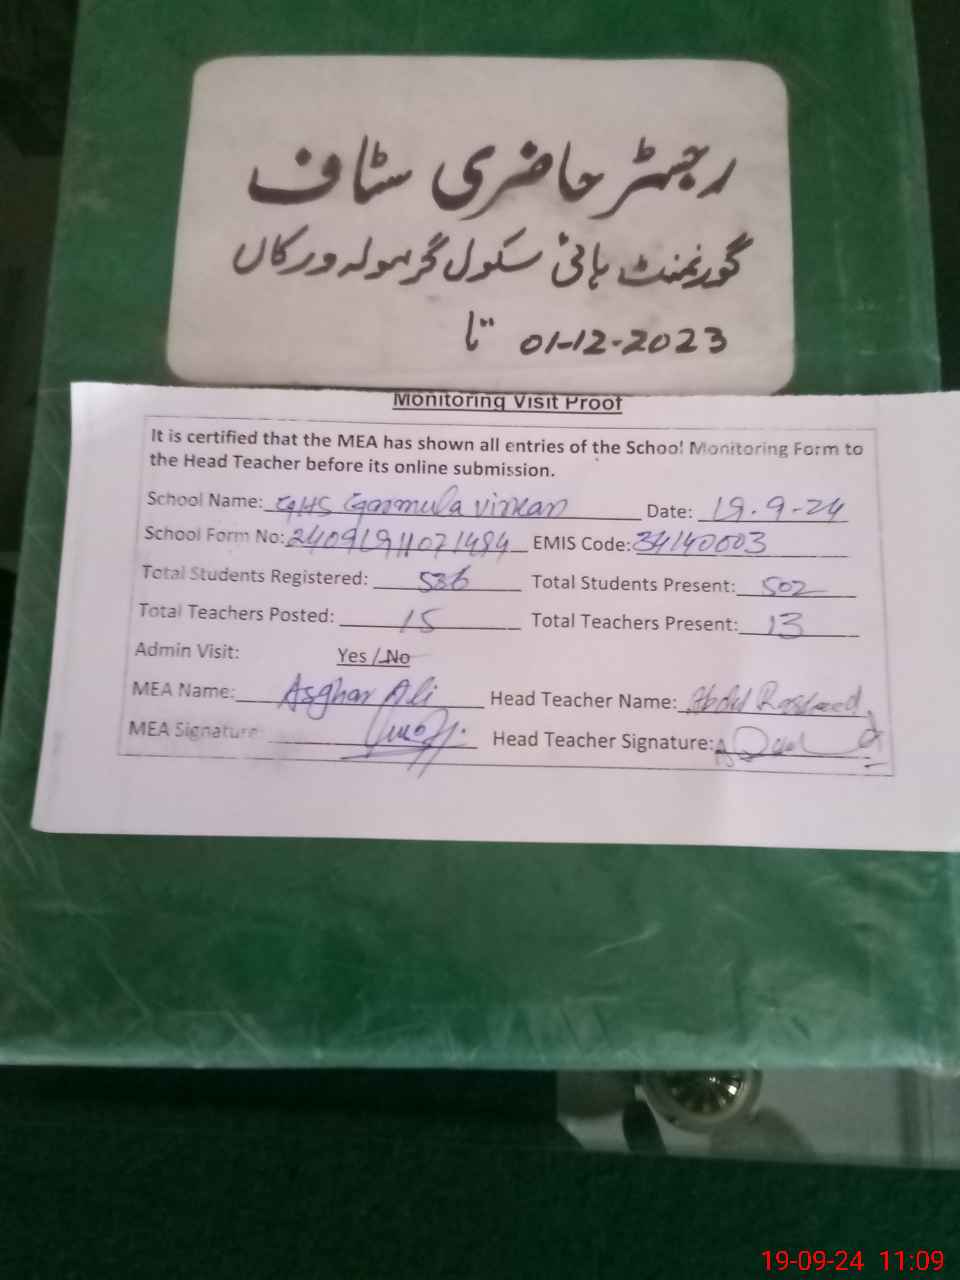 رجسٹر حاضری سٹاف
گورنمنٹ ہائی سکول گرمولہ ورکاں
01-12-2023 تا
Monitoring Visit Proof
It is certified that the MEA has shown all entries of the School Monitoring Form to
the Head Teacher before its online submission.
School Name: GHS Garmula Virkan Date: 19.9-24
School Form No: 24091911071494 EMIS Code: 34140003
Total Students Registered: 536 Total Students Present: 502
Total Teachers Posted: 15 Total Teachers Present: 13
Admin Visit: Yes / No
MEA Name: Asghar Ali Head Teacher Name: Abdul Rasheed
MEA Signature Head Teacher Signature:
19-09-24 11:09